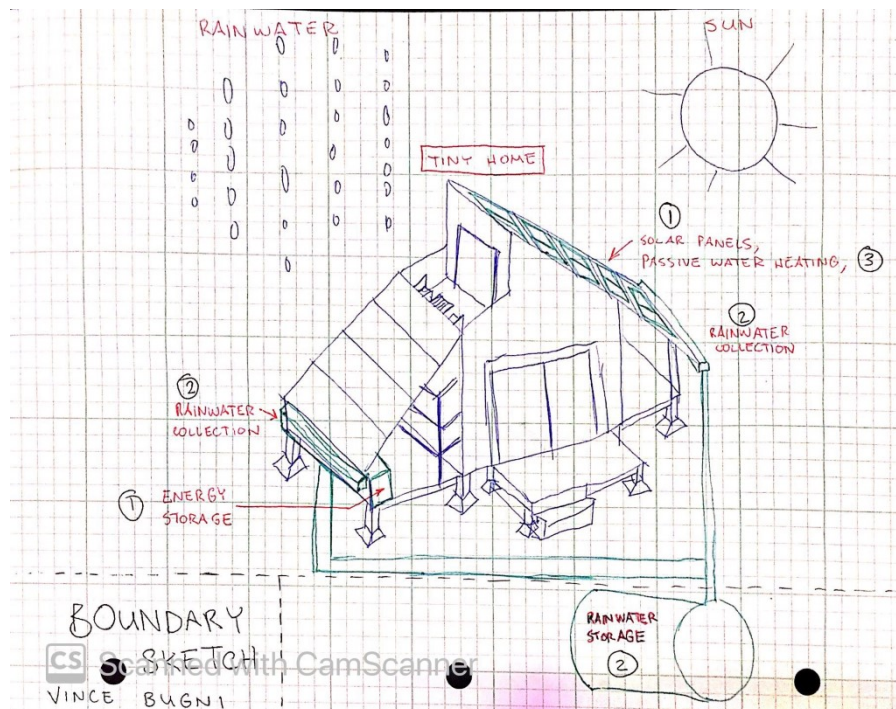 RAINWATER
SUN
TINY HOME
①
SOLAR PANELS,
PASSIVE WATER HEATING, ③
②
RAINWATER
COLLECTION
②
RAINWATER
COLLECTION
① ENERGY
STORAGE
RAINWATER
STORAGE
②
BOUNDARY
SKETCH
CS Scanned with CamScanner
VINCE BUGNI